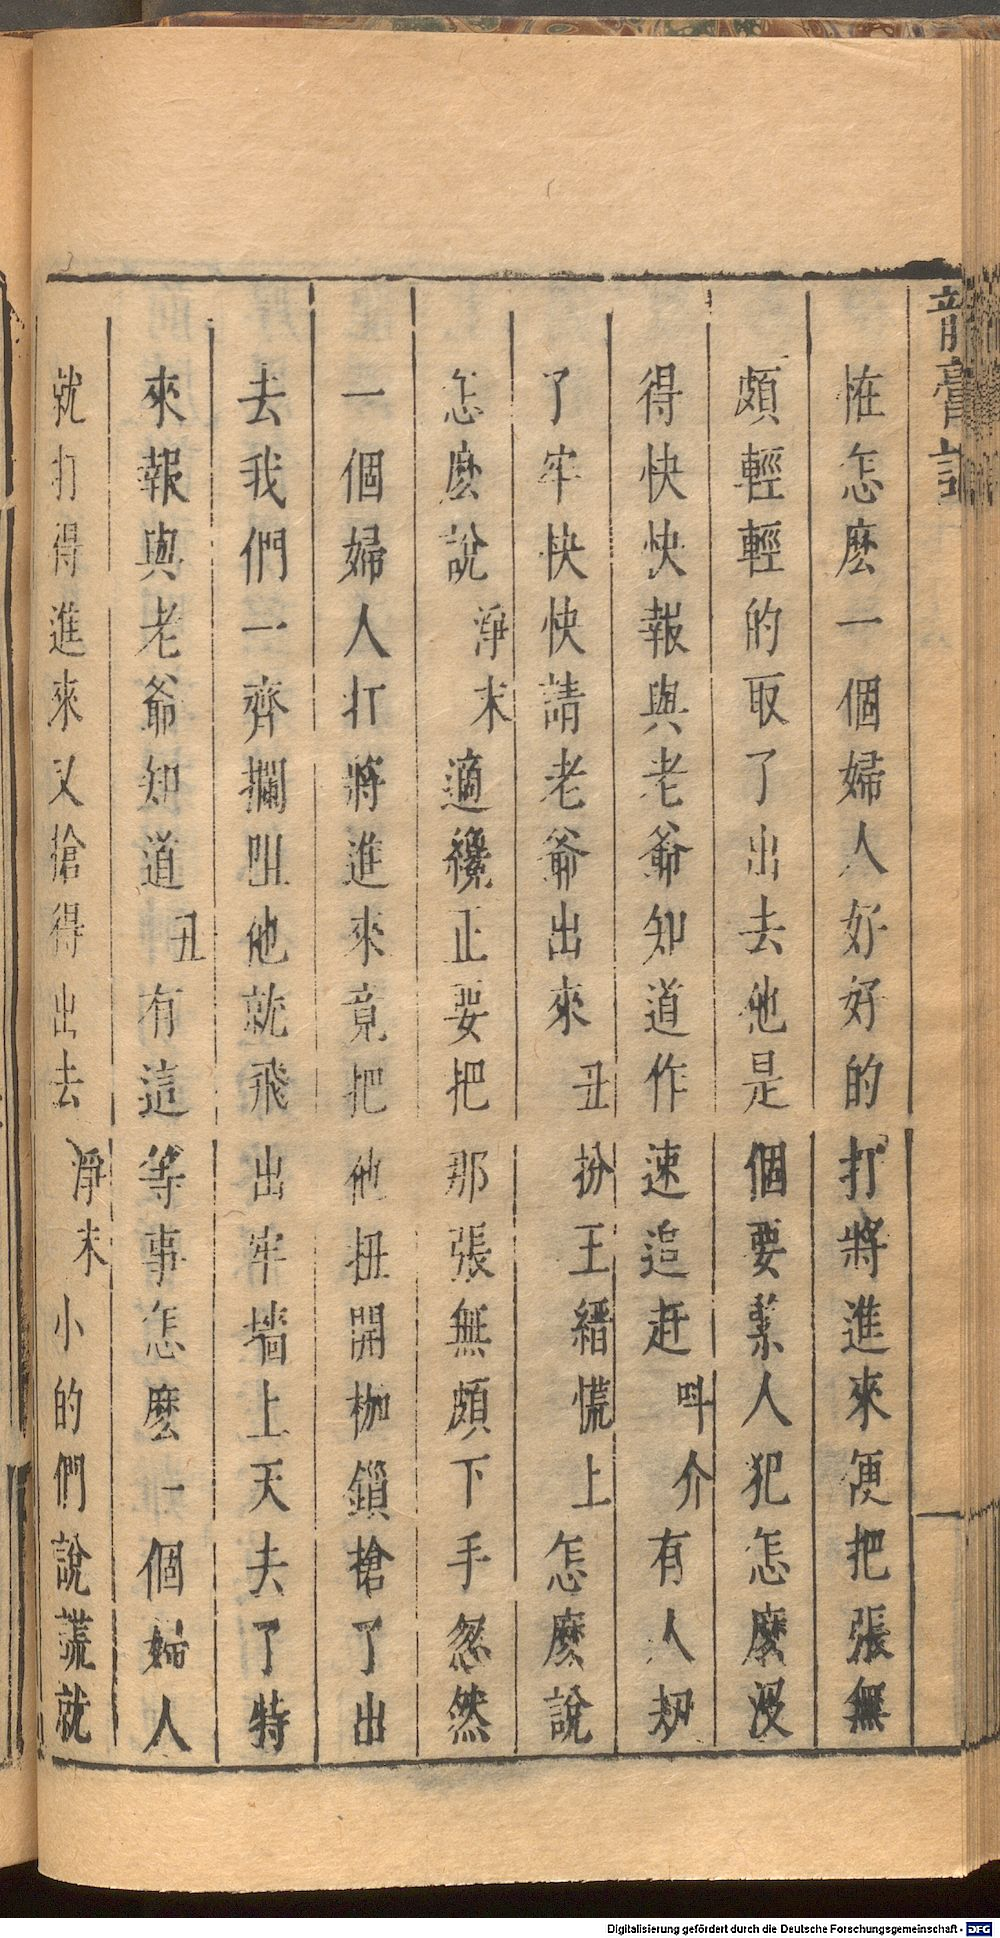 龍膏記
恠怎麽一個婦人好好的打將進來便把張無
頗輕輕的取了出去他是個要𥿄人犯怎麽沒
得快快報與老爺知道作速追赶 呌介 有人刼
了牢快快請老爺出來 丑扮王縉慌上 怎麽說
怎麽說 淨末 適纔正要把那張無頗下手忽然
一個婦人打將進來竟把他扭開枷鎖搶了出
去我們一齊攔阻他就飛出牢墻上天去了特
來報與老爺知道 丑 有這等事怎麽一個婦人
就打得進來又搶得出去 淨末 小的們說謊就
Digitalisierung gefördert durch die Deutsche Forschungsgemeinschaft - DFG